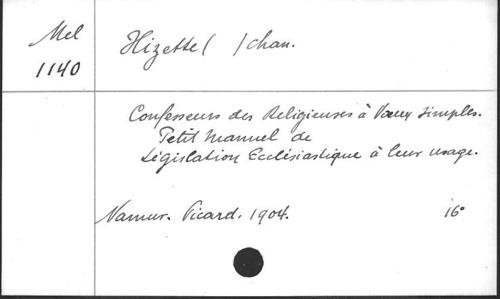 Mel
1140
Hizette( )chan.
Confesseurs des Religieuses à Vœux simples.
Petit Manuel de
Législation Ecclésiastique à leur usage.
Namur. Picard. 1904. 16°